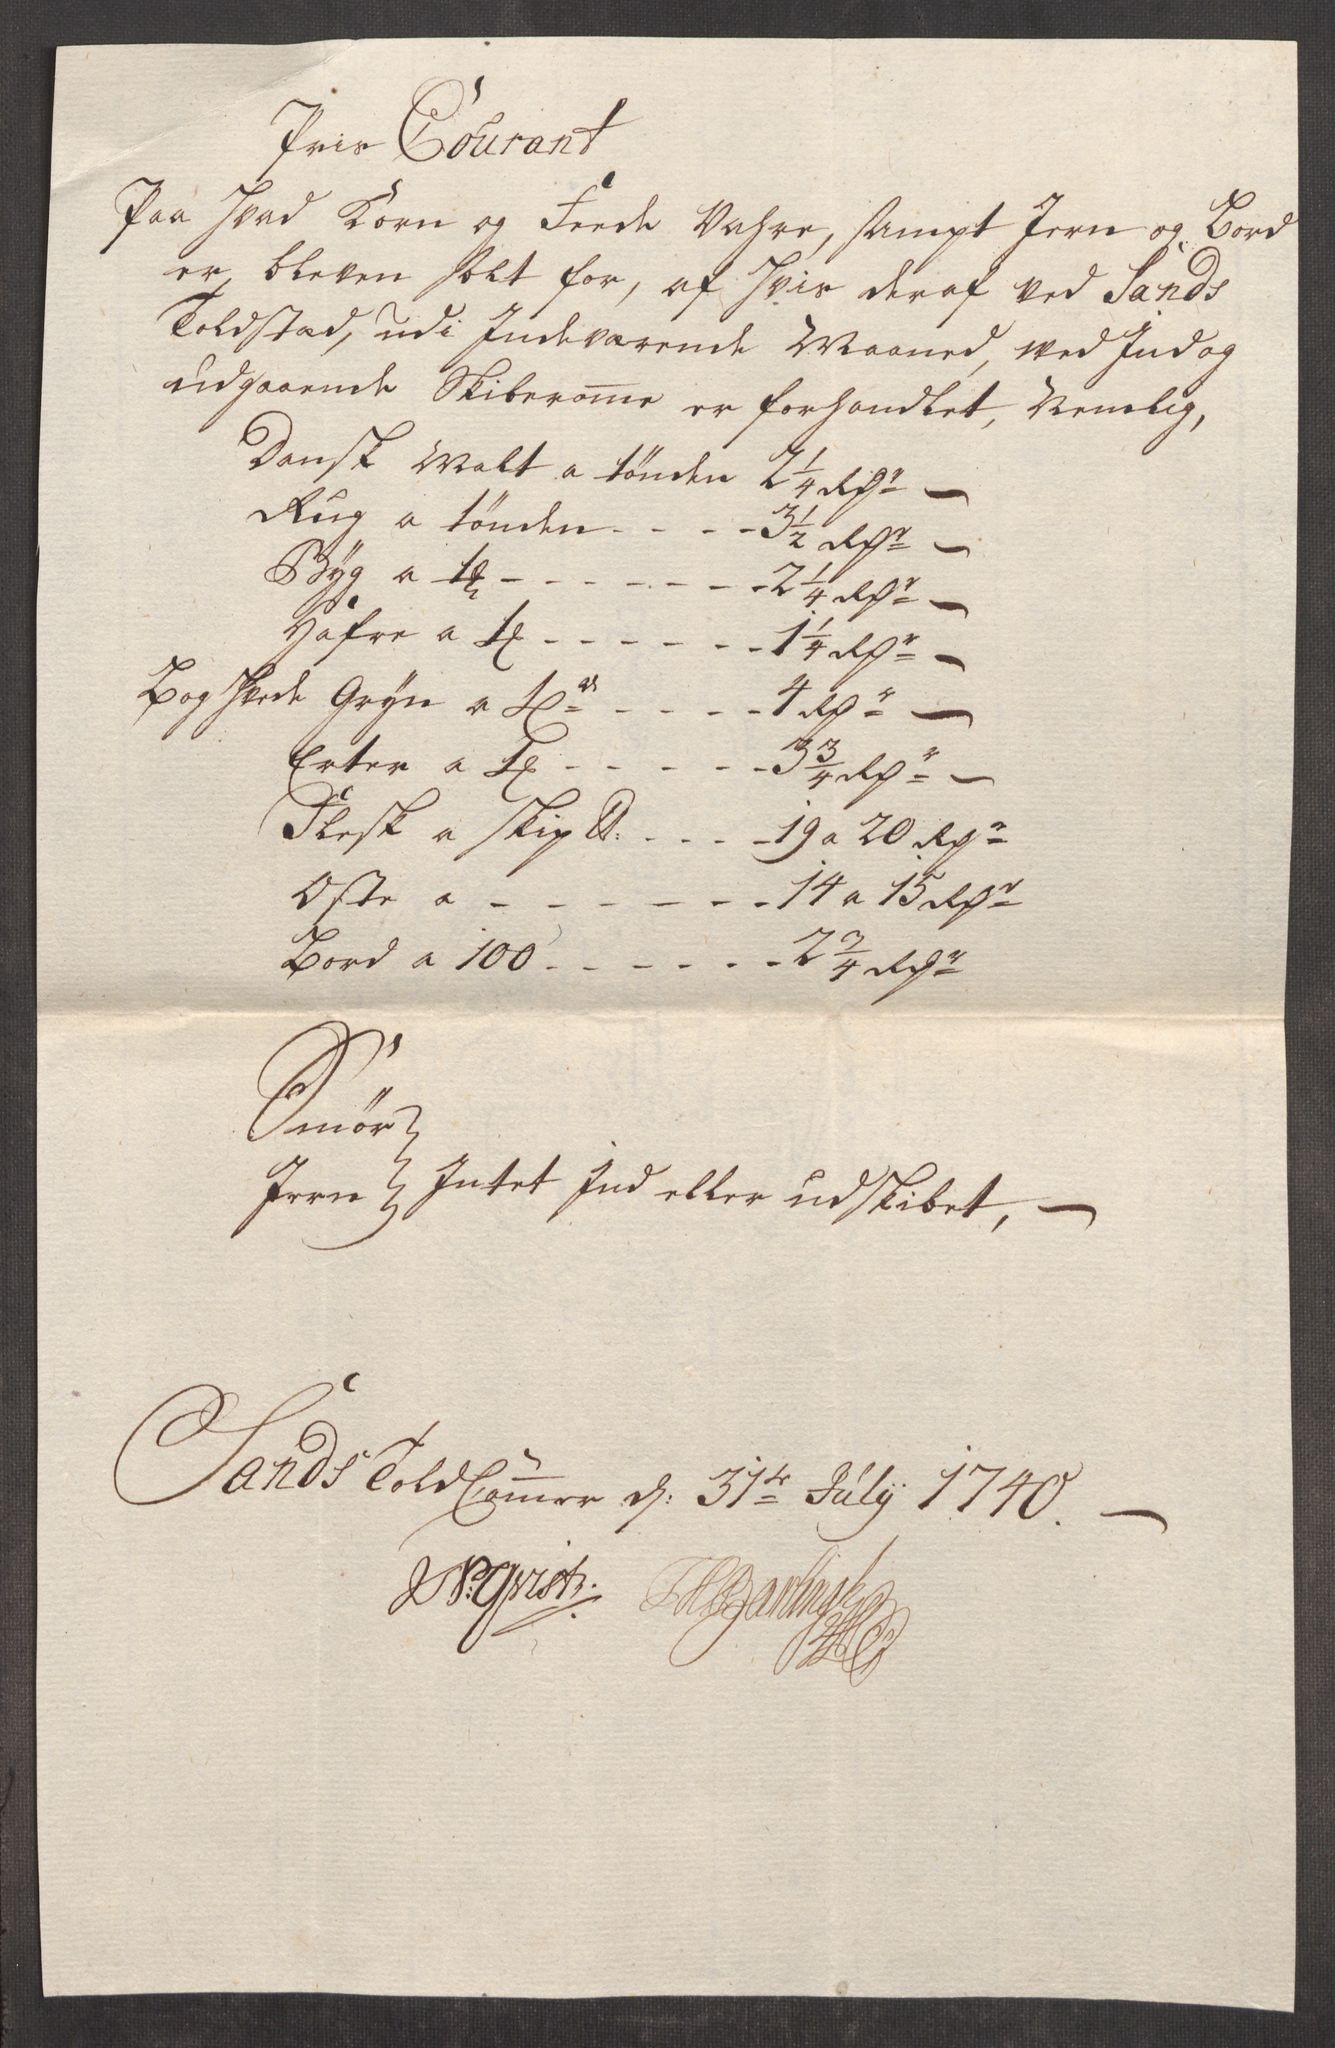 Pris Courant
Paa hvad Korn og Feede Vahre, sampt Jern og Bord
er bleven solt for, af hvis deraf ved Sands
Toldstæd, udi Indeværende Maaned, ved Ind og
udgaaende Skiberome er forhandlet, Nemlig,
Dansk Malt a tönden 2 1/4 Rdr
Rug a tönden - - - - 3 1/2 Rdr
Byg a td - - - - - - - 2 1/4 Rdr
Hafre a td - - - - - - 1 1/4 Rdr
Boghvede Gryn a td - - - - 4 Rdr
Erter a td - - - - - 3 3/4 Rdr
Flesk a skip ℔: - - - - 19 a 20 Rdr
Oste a - - - - - - - 14 a 15 Rdr
Bord a 100 - - - - - - 2 3/4 Rdr
Smör
Jern } Intet Ind eller udskibet,
Sands Told Cammer d: 31te July 1740.